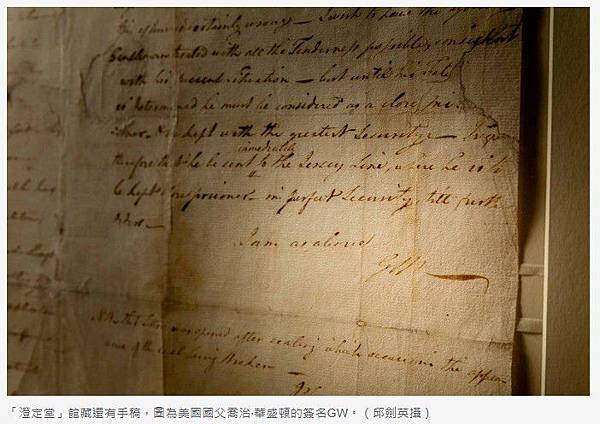 certainly wrong — I wish to have the
Gentleman treated with all the Tenderness possible, consistent
with his present Situation — but until his Fate
is determined he must be considered as a close pri-
soner & be kept with the greatest Security —
immediately
therefore that he be sent to the Jersey Line, where he is to
be kept close prisoner in perfect Security, till furth
orders —
I am as above
GW
that Letter was opened after sealing which occasions the appear
ance of the seal being Broken —
「澄定堂」館藏還有手稿，圖為美國國父喬治‧華盛頓的簽名GW。（邱劍英攝）